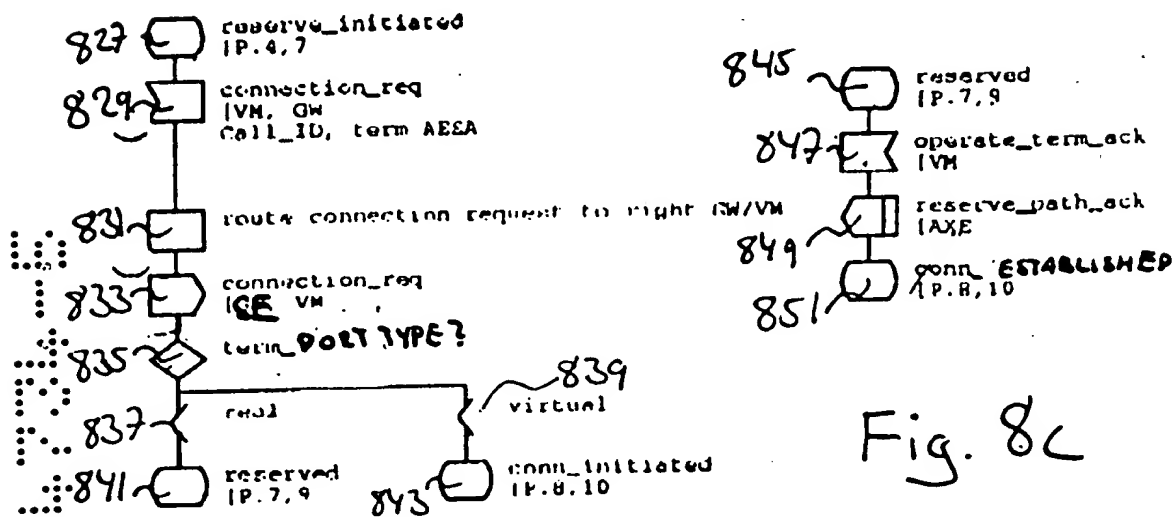 827 reserve_initiated
IP.4,7
829 connection_req
IVM, GW
Call_ID, term AESA
831 route connection request to right GW/VM
833 connection_req
IGE VM
835 term_PORT TYPE?
837 real
839 virtual
841 reserved
IP.7,9
843 conn_initiated
IP.8,10
845 reserved
IP.7,9
847 operate_term_ack
IVM
849 reserve_path_ack
IAXE
851 conn_ESTABLISHED
IP.8,10
Fig. 8c